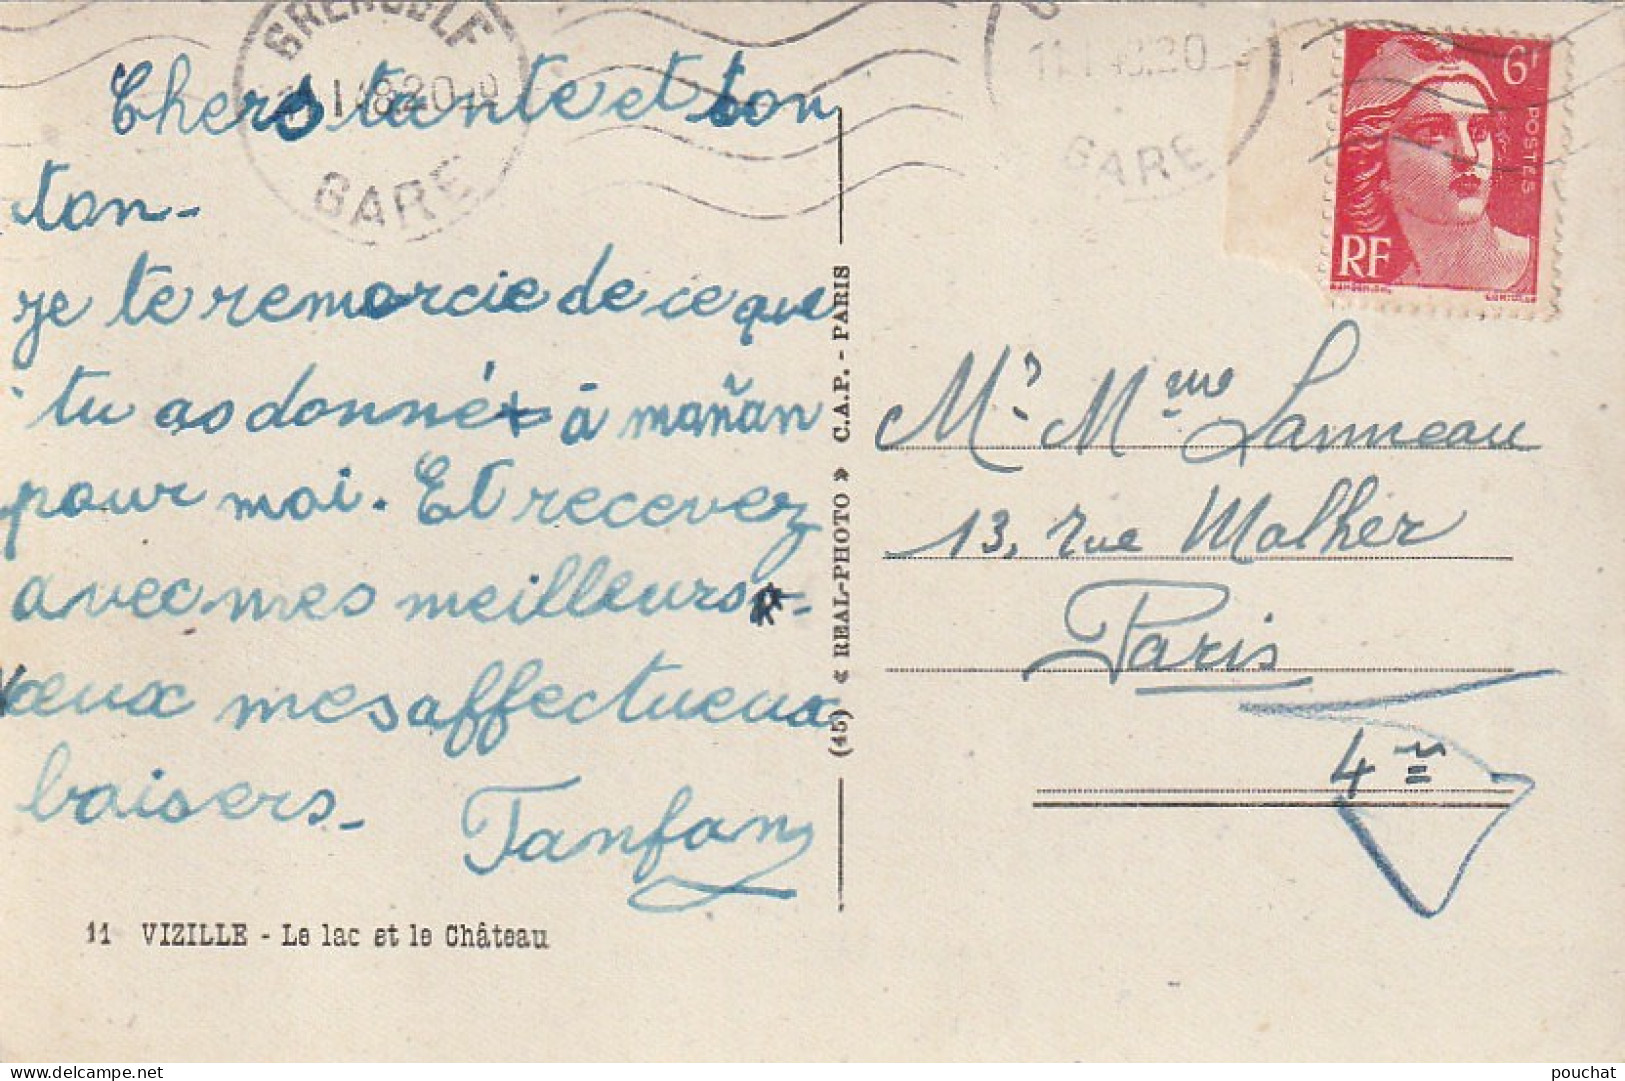 GRENOBLE
GARE
Chers tante et ton
ton-
je te remorcie de ce que
tu as donné à mañan
pour moi. Et recevez
avec mes meilleurs
voeux mes affectueux
baisers-
Tanfan
11 VIZILLE - Le lac et le Château
(45) « REAL-PHOTO » C.A.P. - PARIS
GARE
6F
POSTES
RF
Mr Mme Lanneau
13, rue Malher
Paris
4
www.delcampe.net
pouchat